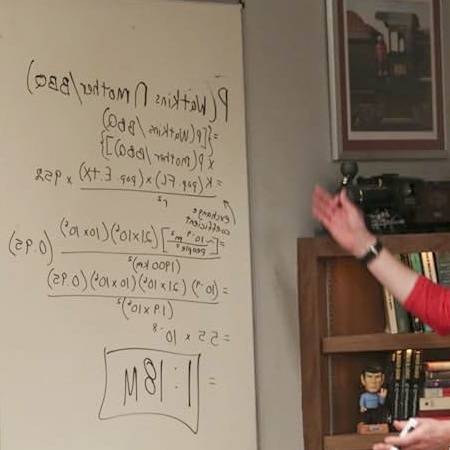 P(Watkins ∩ Mother/BBQ)
={[P(Watkins/BBQ)
x P(Mother/BBQ)]}
=K (pop. FL) x (pop. E.TX) x .952
r²
exchange
coefficient
=[~10⁻⁹ m²/people²] (21x10⁶)(10x10⁶) (0.95)
(1900 km)²
=(10⁻⁹)(21x10⁶)(10x10⁶)(0.95)
(19x10⁵)²
=5.5 x 10⁻⁸
= 1:18M